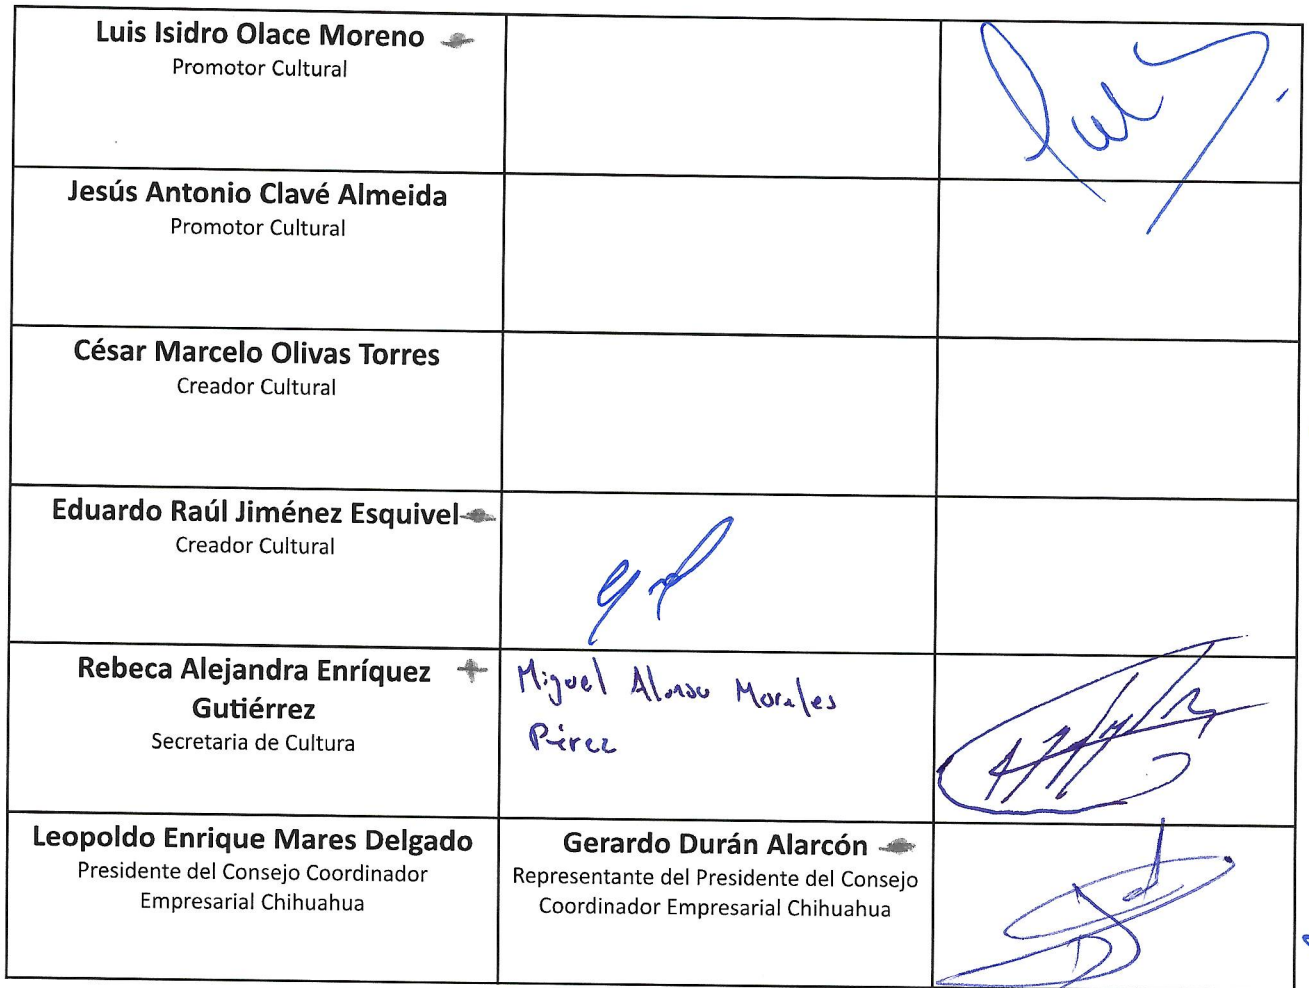 Luis Isidro Olace Moreno
Promotor Cultural
Jesús Antonio Clavé Almeida
Promotor Cultural
César Marcelo Olivas Torres
Creador Cultural
Eduardo Raúl Jiménez Esquivel
Creador Cultural
Rebeca Alejandra Enríquez
Gutiérrez
Secretaria de Cultura
Miguel Alonso Morales
Pérez
Leopoldo Enrique Mares Delgado
Presidente del Consejo Coordinador
Empresarial Chihuahua
Gerardo Durán Alarcón
Representante del Presidente del Consejo
Coordinador Empresarial Chihuahua